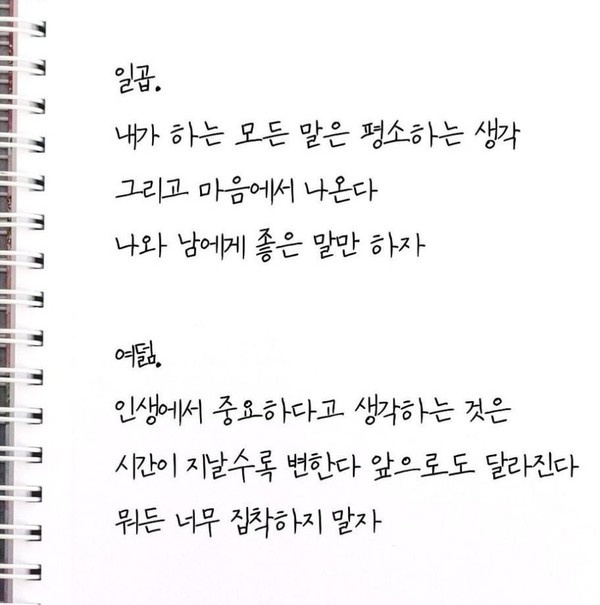 일곱.
내가 하는 모든 말은 평소하는 생각
그리고 마음에서 나온다
나와 남에게 좋은 말만 하자
여덟.
인생에서 중요하다고 생각하는 것은
시간이 지날수록 변한다 앞으로도 달라진다
뭐든 너무 집착하지 말자